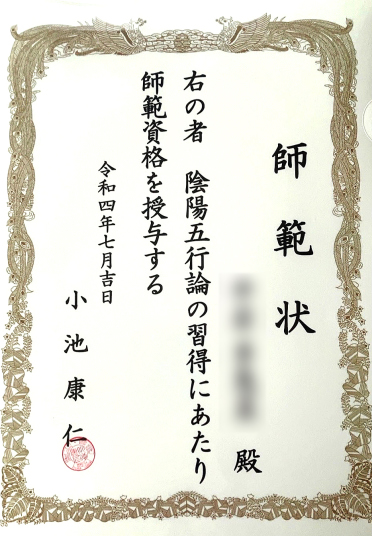 師範状
殿
右の者　陰陽五行論の習得にあたり
師範資格を授与する
令和四年七月吉日
小池康仁